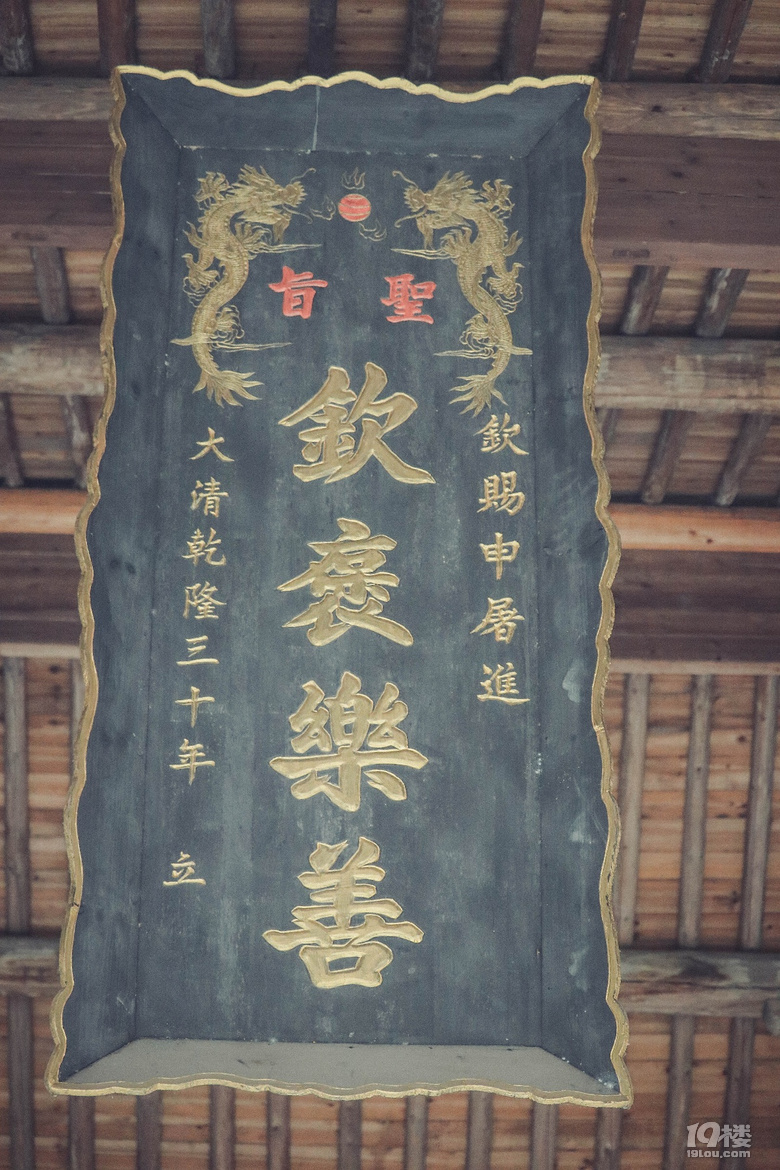 聖旨
欽賜申屠進
欽褒樂善
大清乾隆三十年 立
19楼
19lou.com